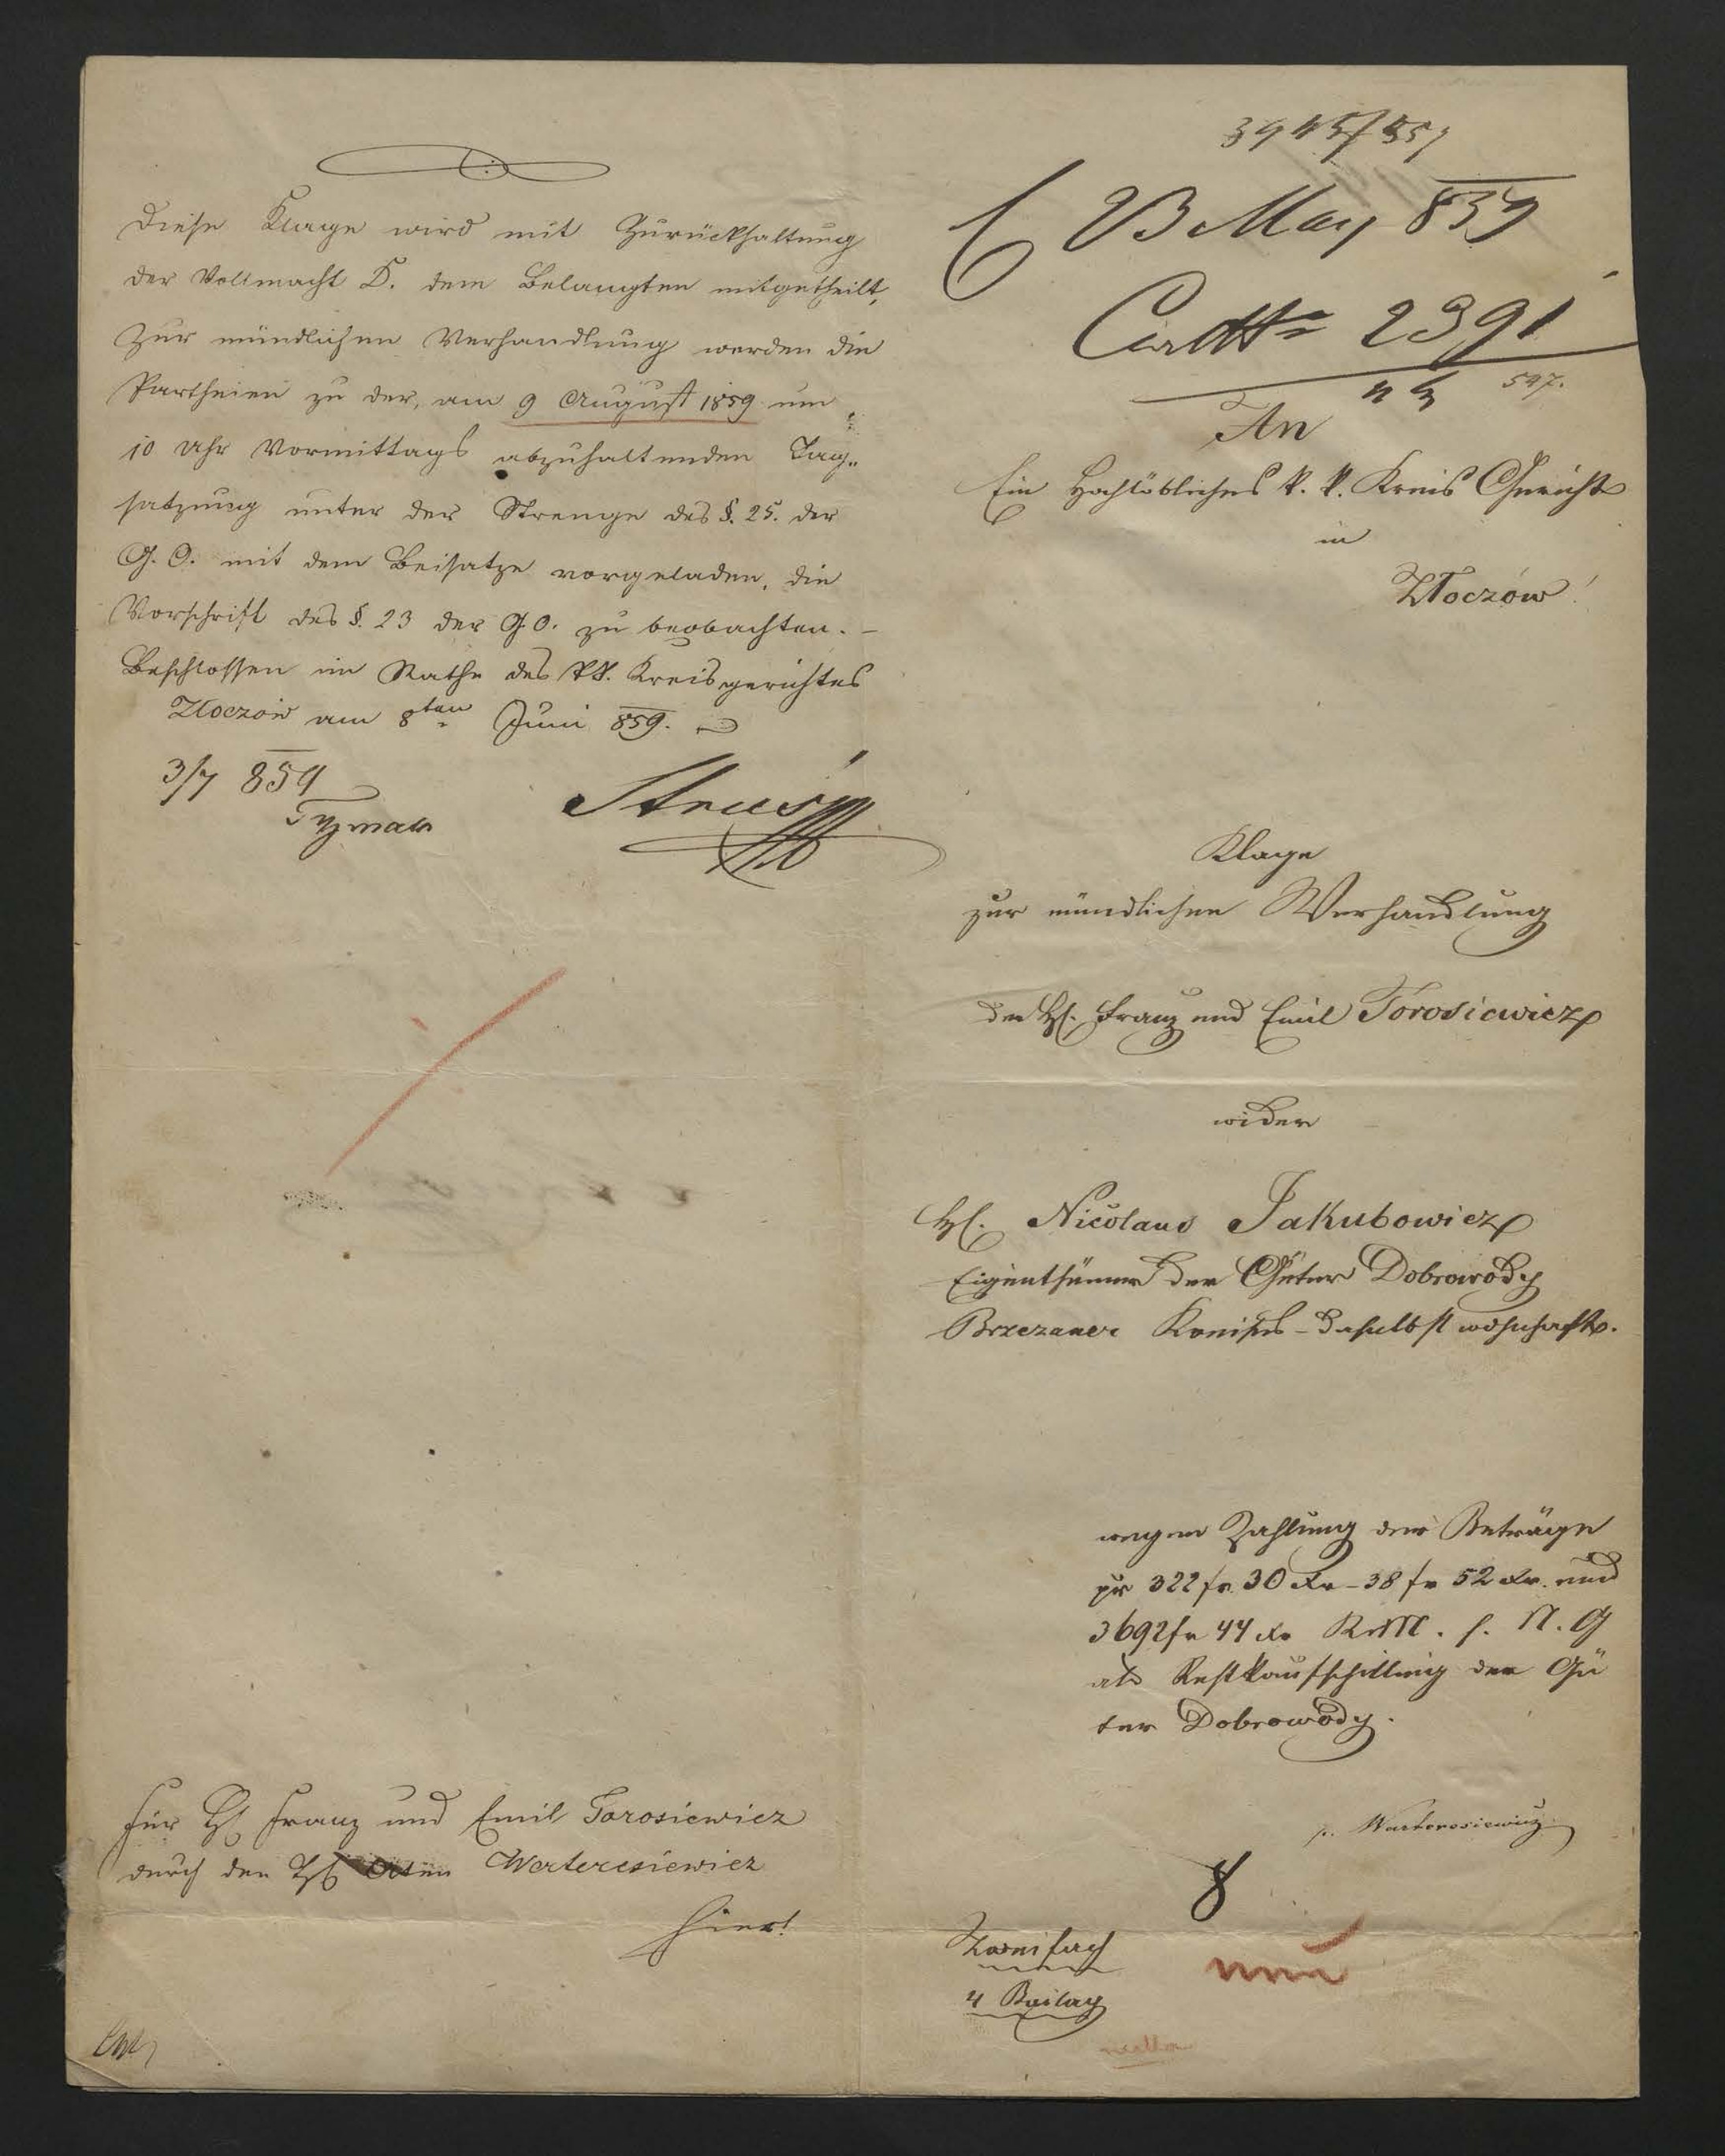 Diese Klage wird mit Zurückhaltung
der Vollmacht D. dem Belangten mitgetheilt,
Zur mündlichen Verhandlung werden die
Partheien zu der, am 9 August 1859 um
10 Uhr Vormittags abzuhaltenden Tag„
satzung unter der Strenge des §. 25. der
G. O. mit dem Beisatze vorgeladen, die
Vorschrift des §. 23 der G. O. zu beobachten. –
Beschlossen im Rathe des kk. Kreisgerichtes
Złoczów am 8ten Juni 859.
3/7 859
Für H. Franz und Emil Torosiewicz
durch den H.
Warteresiewicz
hier!
23 May 859
2391
547.
An
Ein Hochlöbliches k. k. Kreis Gericht
in
Złoczów!
Klage
zur mündlichen Verhandlung
der H. Franz und Emil Torosiewicz
wider
H. Nicolaus Jakubowicz
Eigenthümer der Güter Dobrowody
Brzezaner Kreises – daselbst wohnhaft.
wegen Zahlung der Beträge
pr 322 fr 30 Xr – 38 fr 52 Xr. und
3692 fr 44 Xr KMM. s. N. G
als Restkaufschilling der Gü
ter Dobrowody.
p. Warteresiewicz
8
Zweifach
4 Beilag